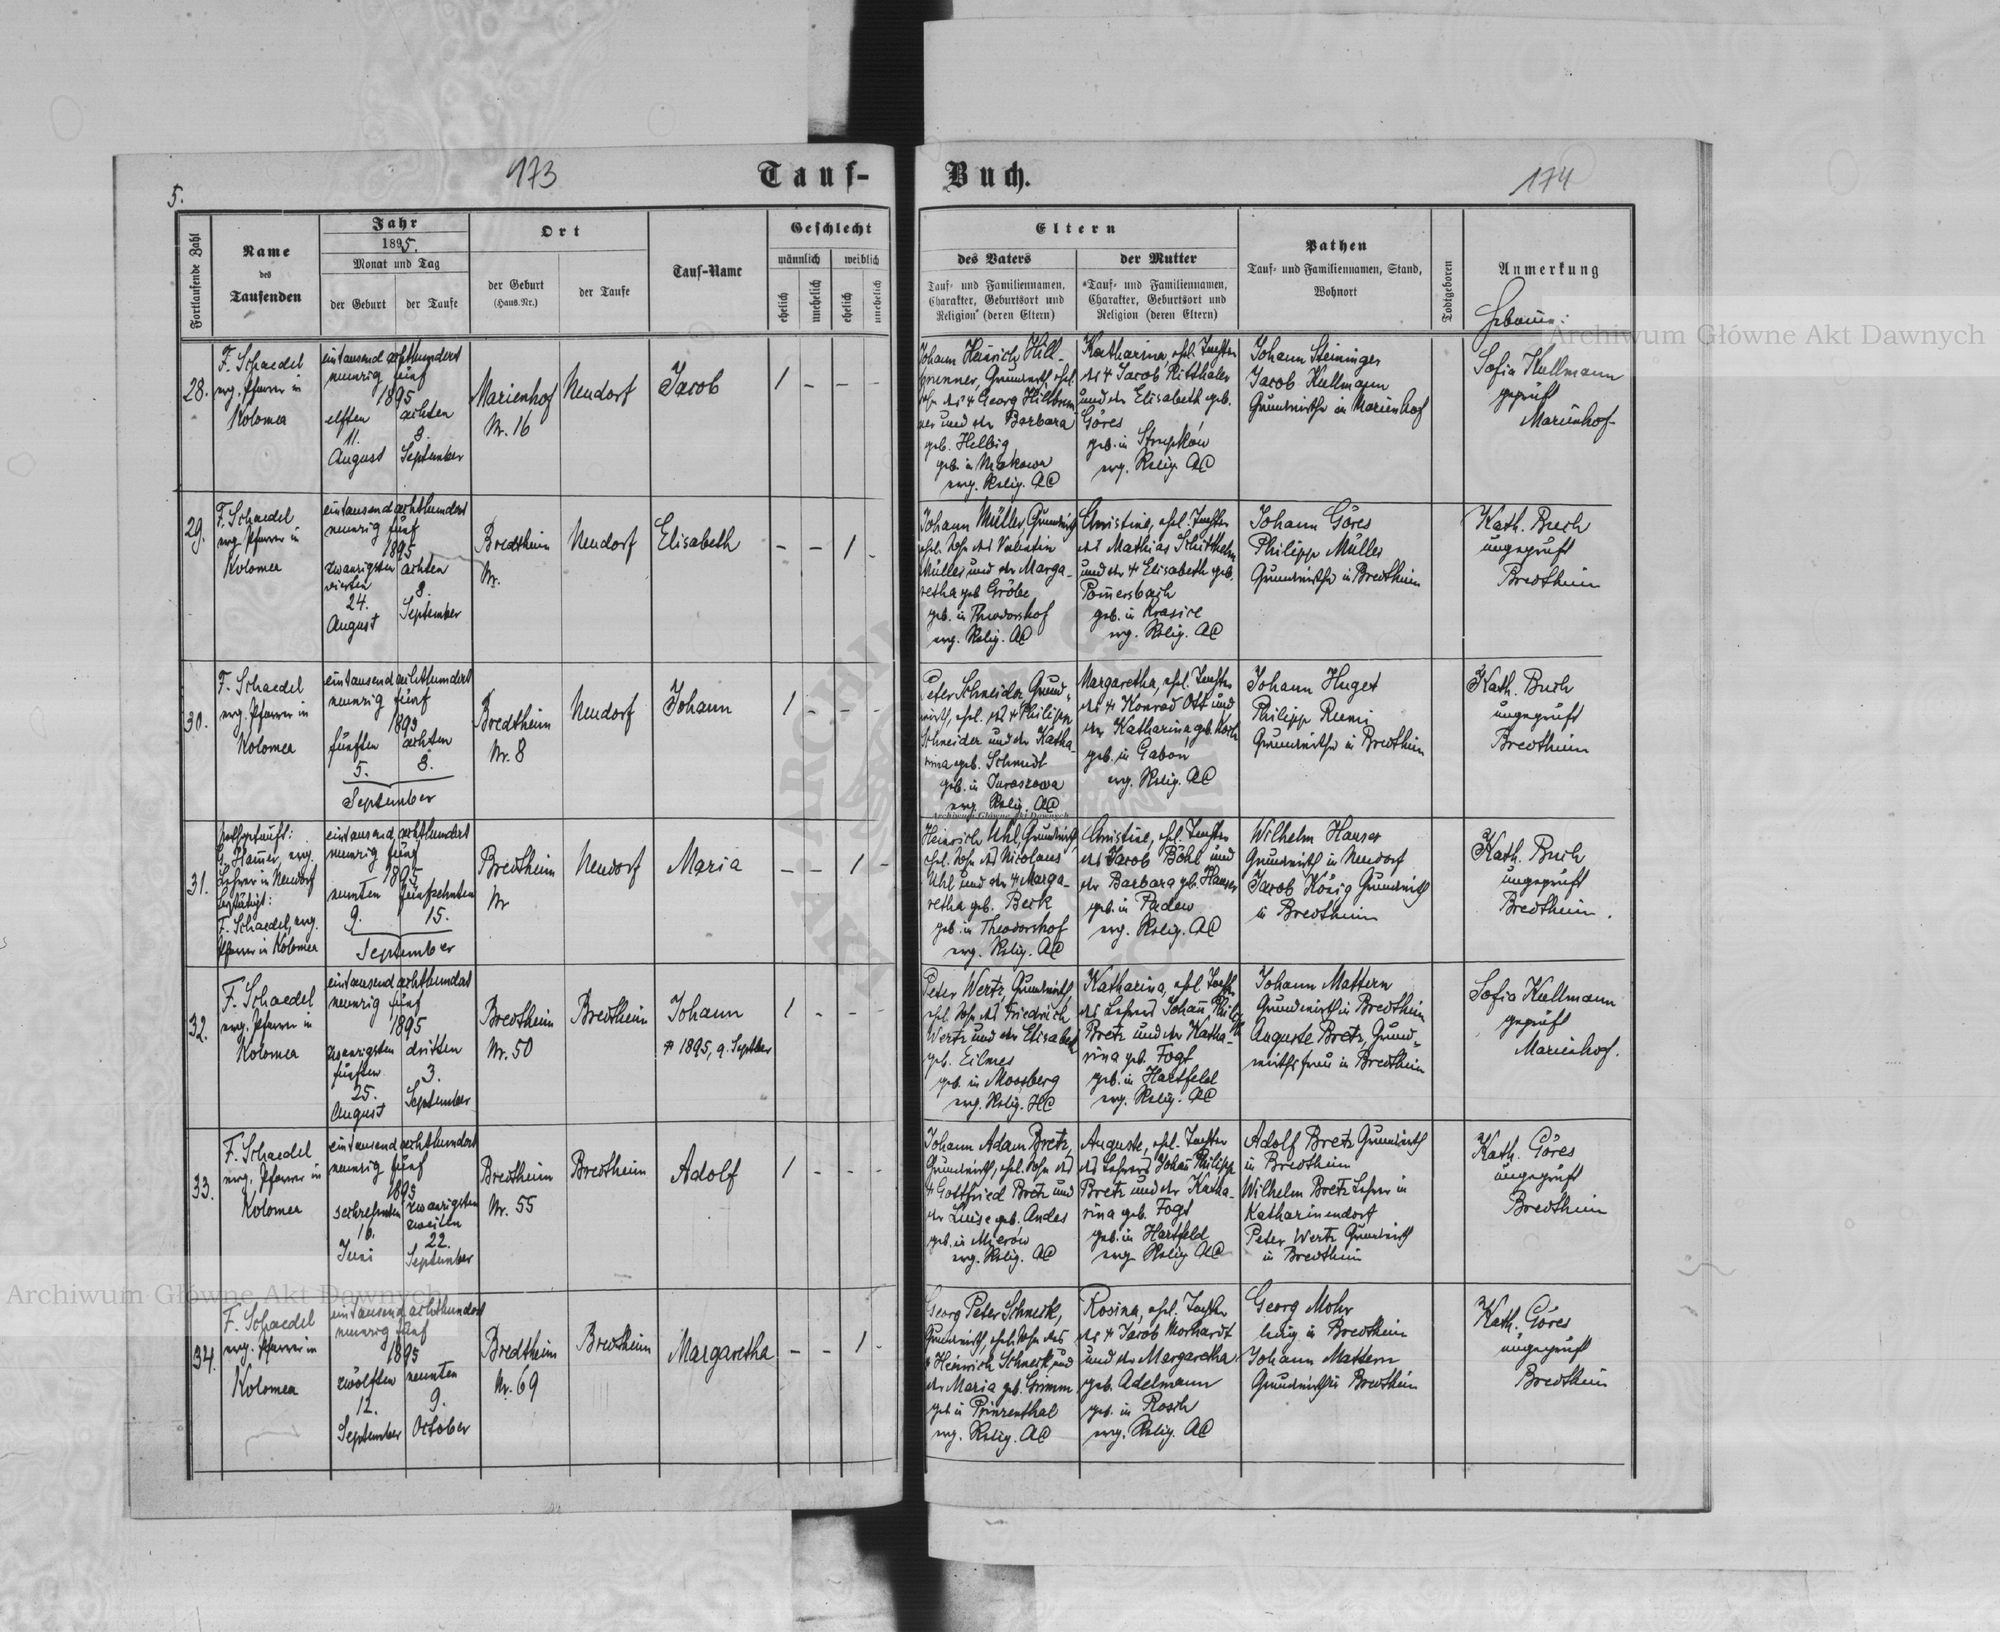 5.
173
Tauf-
Buch.
174
Fortlaufende Zahl
Name
des
Taufenden
Jahr
1895.
Monat und Tag
der Geburt
der Taufe
Ort
der Geburt
(Haus-Nr.)
der Taufe
Tauf-Name
Geschlecht
männlich
weiblich
ehelich
unehelich
ehelich
unehelich
Eltern
des Vaters
Tauf- und Familiennamen,
Charakter, Geburtsort und
Religion (deren Eltern)
der Mutter
Tauf- und Familiennamen,
Charakter, Geburtsort und
Religion (deren Eltern)
Pathen
Tauf- und Familiennamen, Stand,
Wohnort
Todtgeboren
Anmerkung
Archiwum Główne Akt Dawnych
28.
F. Schaedel
evg. Pfarrer in
Kolomea
eintausend achthundert
neunzig fünf
1895
elften
11.
August
achten
8.
September
Marienhof
Nr. 16
Neudorf
Jacob
1 - - -
Johann Heinrich Hill-
brunner, Grundwirth, ehel.
Sohn des + Georg Hillbrun-
ner und der Barbara
geb. Helbig
geb. in
evg. Relig. AC
Katharina, ehel. Tochter
des + Jacob Ritthaler
und der Elisabeth geb.
Göres
geb. in
evg. Relig. AC
Johann Steininger
Jacob Kullmann
Grundwirthe in Marienhof
Sofia Kullmann
geprüft
Marienhof
29.
F. Schaedel
evg. Pfarrer in
Kolomea
eintausend achthundert
neunzig fünf
1895
zwanzigsten
vierten
24.
August
achten
8.
September
Bredtheim
Nr.
Neudorf
Elisabeth
- - 1 -
Johann Müller, Grundwirth
ehel. Sohn des Valentin
Müller und der Marga-
retha geb. Gröbe
geb. in Theodorshof
evg. Relig. AC
Christine, ehel. Tochter
des Mathias Schitthelm
und der + Elisabeth geb.
Pomersbach
geb. in Krasice
evg. Relig. AC
Johann Göres
Philipp Müller
Grundwirthe in Bredtheim
Kath. Buch
ungeprüft
Bredtheim
30.
F. Schaedel
evg. Pfarrer in
Kolomea
eintausend achthundert
neunzig fünf
1895
fünften
5.
achten
8.
September
Bredtheim
Nr. 8
Neudorf
Johann
1 - - -
Peter Schneider, Grund-
wirth, ehel. des + Philipp
Schneider und der Katha-
rina geb. Schmidt
geb. in Juraszowa
evg. Relig. AC
Margaretha, ehel. Tochter
des + Konrad Ott und
der Katharina geb. Koch
geb. in Gaboń
evg. Relig. AC
Johann Huget
Philipp
Grundwirthe in Bredtheim
Kath. Buch
ungeprüft
Bredtheim
Archiwum Główne Akt Dawnych
31.
Nothgetauft:
evg.
Lehrer in Neudorf
bestätigt:
F. Schaedel, evg.
Pfarrer in Kolomea
eintausend achthundert
neunzig fünf
1895
neunten
9.
fünfzehnten
15.
September
Bredtheim
Nr
Neudorf
Maria
- - 1 -
Heinrich Uhl, Grundwirth,
ehel. Sohn des Nicolaus
Uhl und der + Marga-
retha geb. Beck
geb. in Theodorshof
evg. Relig. AC
Christine, ehel. Tochter
des Jacob Böhl und
der Barbara geb. Hauser
geb. in Padew
evg. Relig. AC
Wilhelm Hauser
Grundwirth in Neudorf
Jacob König Grundwirth
in Bredtheim
Kath. Buch
ungeprüft
Bredtheim.
32.
F. Schaedel
evg. Pfarrer in
Kolomea
eintausend achthundert
neunzig fünf
1895
zwanzigsten
fünften
25.
August
dritten
3.
September
Bredtheim
Nr. 50
Bredtheim
Johann
+ 1895, 9. Septber
1 - - -
Peter Wertz, Grundwirth
ehel. Sohn des Friedrich
Wertz und der Elisabeth
geb. Eilmes
geb. in Moosberg
evg. Relig. HC
Katharina, ehel. Tochter
des Lehrers Johann Philipp
Bretz und der Katha-
rina geb. Fogt
geb. in Hartfeld
evg. Relig. AC
Johann Mattern
Grundwirth in Bredtheim
Auguste Bretz, Grund-
wirthsfrau in Bredtheim
Sofia Kullmann
geprüft
Marienhof.
33.
F. Schaedel
evg. Pfarrer in
Kolomea
eintausend achthundert
neunzig fünf
1895
sechzehnten
16.
Juni
zwanzigsten
zweiten
22.
September
Bredtheim
Nr. 55
Bredtheim
Adolf
1 - - -
Johann Adam Bretz,
Grundwirth, ehel. Sohn des
+ Gottfried Bretz und
der Luise geb. Andes
geb. in Mierów
evg. Relig. AC
Auguste, ehel. Tochter
des Lehrers Johann Philipp
Bretz und der Katha-
rina geb. Fogt
geb. in Hartfeld
evg. Relig. AC
Adolf Bretz Grundwirth
in Bredtheim
Wilhelm Bretz Lehrer in
Katharinendorf
Peter Wertz Grundwirth
in Bredtheim
Kath. Göres
ungeprüft
Bredtheim
Archiwum Główne Akt Dawnych
34.
F. Schaedel
evg. Pfarrer in
Kolomea
eintausend achthundert
neunzig fünf
1895
zwölften
12.
September
neunten
9.
October
Bredtheim
Nr. 69
Bredtheim
Margaretha
- - 1 -
Georg Peter Schneck,
Grundwirth, ehel. Sohn des
+ Heinrich Schneck und
der Maria geb. Grimm
geb. in Prinzenthal
evg. Relig. AC
Rosina, ehel. Tochter
des + Jacob Morhardt
und der Margaretha
geb. Adelmann
geb. in Rosch
evg. Relig. AC
Georg Mohr
ledig in Bredtheim
Johann Mattern
Grundwirth in Bredtheim
Kath. Göres
ungeprüft
Bredtheim